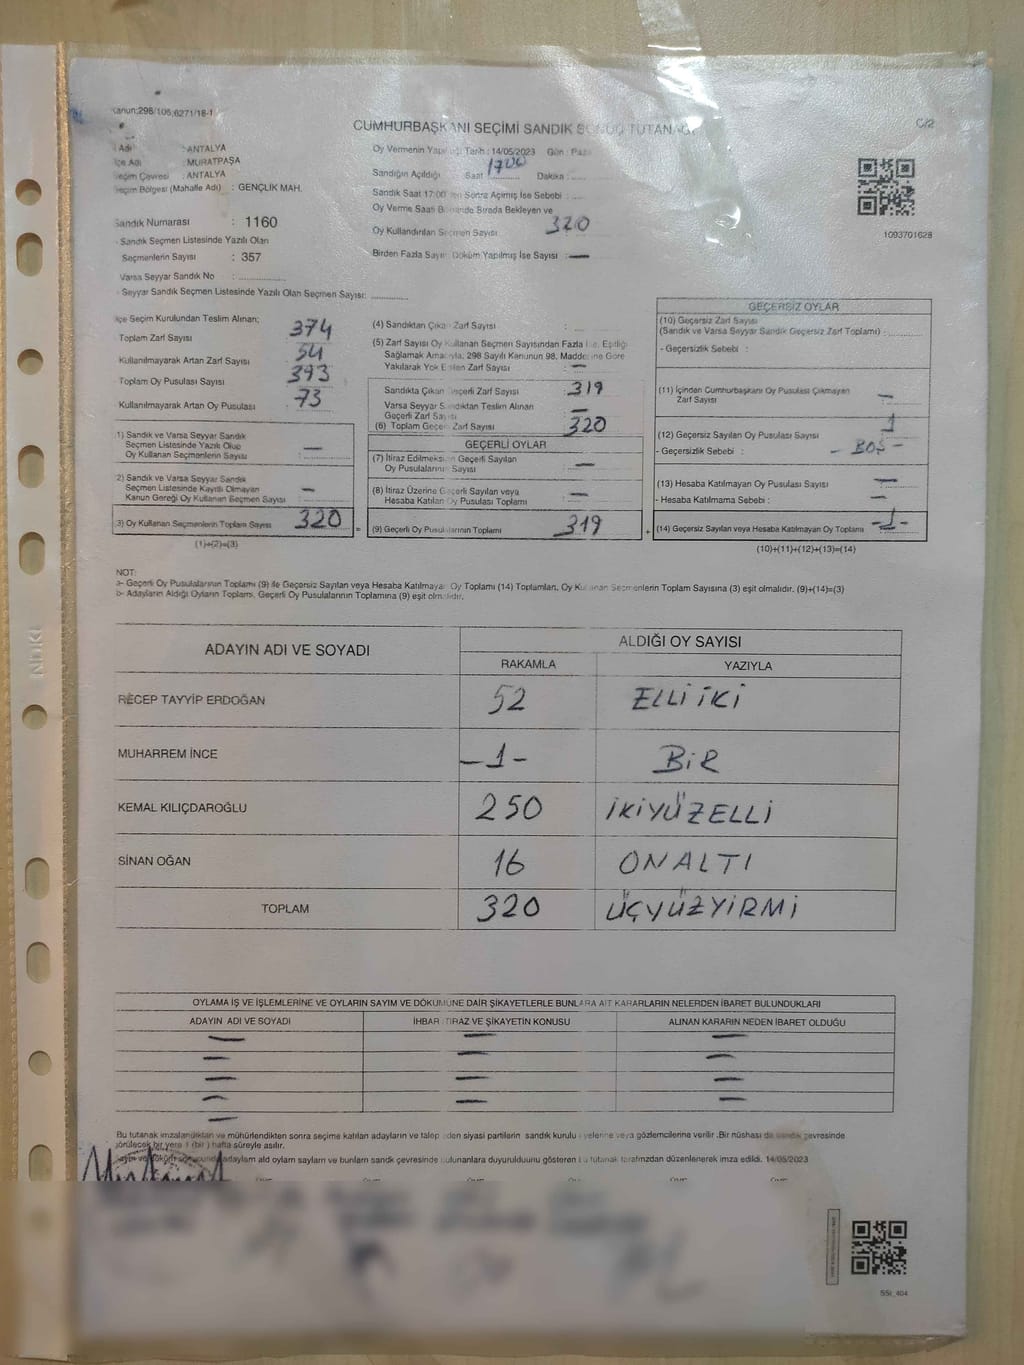 Kanun:298/105;6271/18-1
C/2
CUMHURBAŞKANI SEÇİMİ SANDIK SONUÇ TUTANAĞI
İl Adı : ANTALYA
İlçe Adı : MURATPAŞA
Seçim Çevresi : ANTALYA
Seçim Bölgesi (Mahalle Adı) : GENÇLİK MAH.
Sandık Numarası : 1160
Sandık Seçmen Listesinde Yazılı Olan
Seçmenlerin Sayısı : 357
Varsa Seyyar Sandık No :
Seyyar Sandık Seçmen Listesinde Yazılı Olan Seçmen Sayısı:
Oy Vermenin Yapıldığı Tarih : 14/05/2023 Gün : Paz
Sandığın Açıldığı Saat 1700 Dakika :
Sandık Saat 17:00 den Sonra Açımış İse Sebebi :
Oy Verme Saati Bitiminde Sırada Bekleyen ve
Oy Kullandırılan Seçmen Sayısı 320
Birden Fazla Sayım Döküm Yapılmış İse Sayısı : —
1093701628
İlçe Seçim Kurulundan Teslim Alınan;
Toplam Zarf Sayısı 374
Kullanılmayarak Artan Zarf Sayısı 54
Toplam Oy Pusulası Sayısı 393
Kullanılmayarak Artan Oy Pusulası 73
1) Sandık ve Varsa Seyyar Sandık
Seçmen Listesinde Yazılı Olup
Oy Kullanan Seçmenlerin Sayısı : —
2) Sandık ve Varsa Seyyar Sandık
Seçmen Listesinde Kayıtlı Olmayan
Kanun Gereği Oy Kullanan Seçmen Sayısı : —
3) Oy Kullanan Seçmenlerin Toplam Sayısı 320 =
(1)+(2)=(3)
(4) Sandıktan Çıkan Zarf Sayısı :
(5) Zarf Sayısı Oy Kullanan Seçmen Sayısından Fazla İse, Eşitliği
Sağlamak Amacıyla, 298 Sayılı Kanunun 98. Maddesine Göre
Yakılarak Yok Edilen Zarf Sayısı : —
Sandıkta Çıkan Geçerli Zarf Sayısı : 319
Varsa Seyyar Sandıktan Teslim Alınan
Geçerli Zarf Sayısı : —
(6) Toplam Geçerli Zarf Sayısı : 320
GEÇERLİ OYLAR
(7) İtiraz Edilmeksizin Geçerli Sayılan
Oy Pusulalarının Sayısı : —
(8) İtiraz Üzerine Geçerli Sayılan veya
Hesaba Katılan Oy Pusulası Toplamı : —
(9) Geçerli Oy Pusulalarının Toplamı : 319 +
GEÇERSİZ OYLAR
(10) Geçersiz Zarf Sayısı
(Sandık ve Varsa Seyyar Sandık Geçersiz Zarf Toplamı) :
- Geçersizlik Sebebi :
(11) İçinden Cumhurbaşkanı Oy Pusulası Çıkmayan
Zarf Sayısı : —
(12) Geçersiz Sayılan Oy Pusulası Sayısı : 1
- Geçersizlik Sebebi : - BOŞ -
(13) Hesaba Katılmayan Oy Pusulası Sayısı : —
- Hesaba Katılmama Sebebi : —
(14) Geçersiz Sayılan veya Hesaba Katılmayan Oy Toplamı -1-
(10)+(11)+(12)+(13)=(14)
NOT:
a- Geçerli Oy Pusulalarının Toplamı (9) ile Geçersiz Sayılan veya Hesaba Katılmayan Oy Toplamı (14) Toplamları, Oy Kullanan Seçmenlerin Toplam Sayısına (3) eşit olmalıdır. (9)+(14)=(3)
b- Adayların Aldığı Oyların Toplamı, Geçerli Oy Pusulalarının Toplamına (9) eşit olmalıdır.
ADAYIN ADI VE SOYADI ALDIĞI OY SAYISI
RAKAMLA YAZIYLA
RECEP TAYYİP ERDOĞAN 52 ELLİ İKİ
MUHARREM İNCE -1- BİR
KEMAL KILIÇDAROĞLU 250 İKİYÜZELLİ
SİNAN OĞAN 16 ONALTI
TOPLAM 320 ÜÇYÜZYİRMİ
OYLAMA İŞ VE İŞLEMLERİNE VE OYLARIN SAYIM VE DÖKÜMÜNE DAİR ŞİKAYETLERLE BUNLARA AİT KARARLARIN NELERDEN İBARET BULUNDUKLARI
ADAYIN ADI VE SOYADI İHBAR İTİRAZ VE ŞİKAYETİN KONUSU ALINAN KARARIN NEDEN İBARET OLDUĞU
— — —
— — —
— — —
— — —
—
Bu tutanak imzalandıktan ve mühürlendikten sonra seçime katılan adayların ve talep eden siyasi partilerin sandık kurulu üyelerine veya gözlemcilerine verilir .Bir nüshası da sandık çevresinde
görülecek bir yere 1 (bir ) hafta süreyle asılır.
adayların aldı oyların sayların ve bunların sandık çevresinde bulunanlara duyurulduğunu gösteren bu tutanak tarafımızdan düzenlenerek imza edildi. 14/05/2023
SSt_404